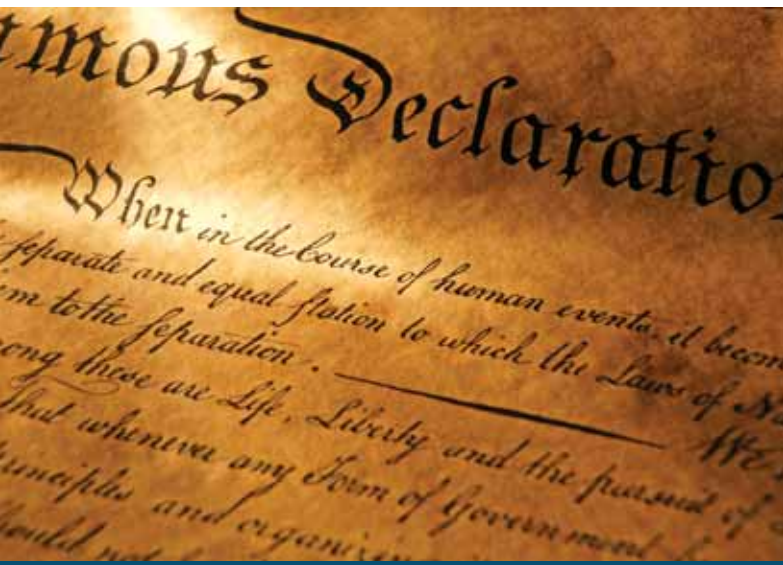 imous Declaratio
When in the Course of human events, it becom
separate and equal station to which the Laws of N
em to the separation. We
ong these are Life, Liberty and the pursuit of
That whenever any Form of Government
rinciples and organizin
hould not